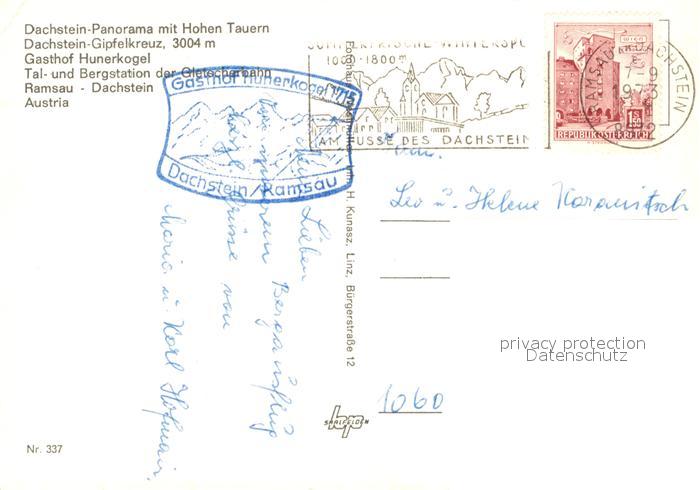 Dachstein-Panorama mit Hohen Tauern
Dachstein-Gipfelkreuz, 3004 m
Gasthof Hunerkogel
Tal- und Bergstation der Gletscherbahn
Ramsau - Dachstein
Austria
Gasthof Hunerkogel 1715
Dachstein/Ramsau
SOMMERFRISCHE WINTERSPO
1000-1800 m
AM FUSSE DES DACHSTEIN
WIEN
1S50
REPUBLIK ÖSTERREICH
RAMSAU AM DACHSTEIN
7-9
1973
8972
Meine Lieben
Bergausflug
Grüsse von
Maria u. Karl Hofmair.
H. Kunasz, Linz, Bürgerstraße 12
Fam.
Leo u. Helene Karanitsch
1060
privacy protection
Datenschutz
hp
SAALFELDEN
Nr. 337